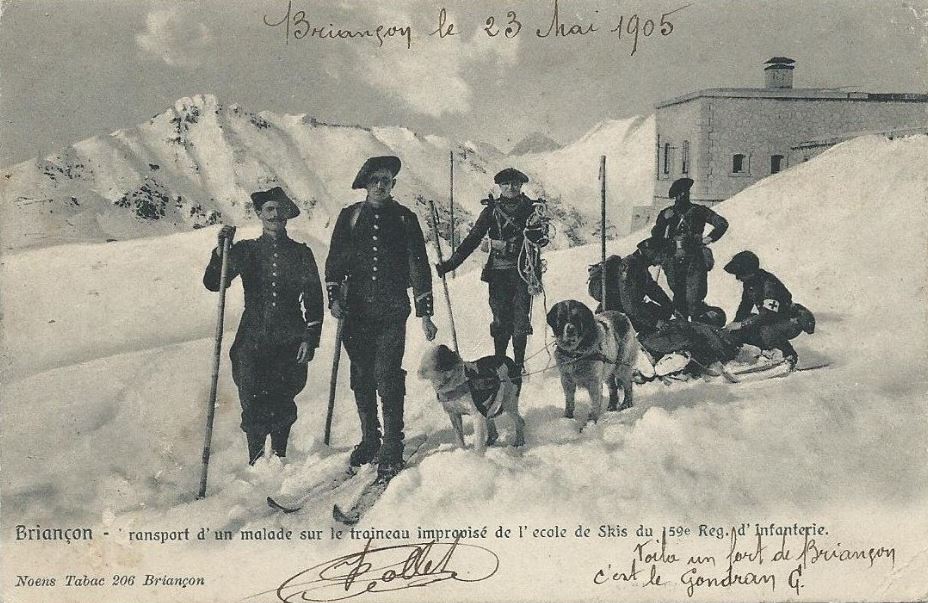 Briançon le 23 Mai 1905
Briançon - Transport d'un malade sur le traineau improvisé de l'ecole de Skis du 159e Reg. d'infanterie.
Voila un fort de Briançon
c'est le Gondran G.
Noens Tabac 206 Briançon